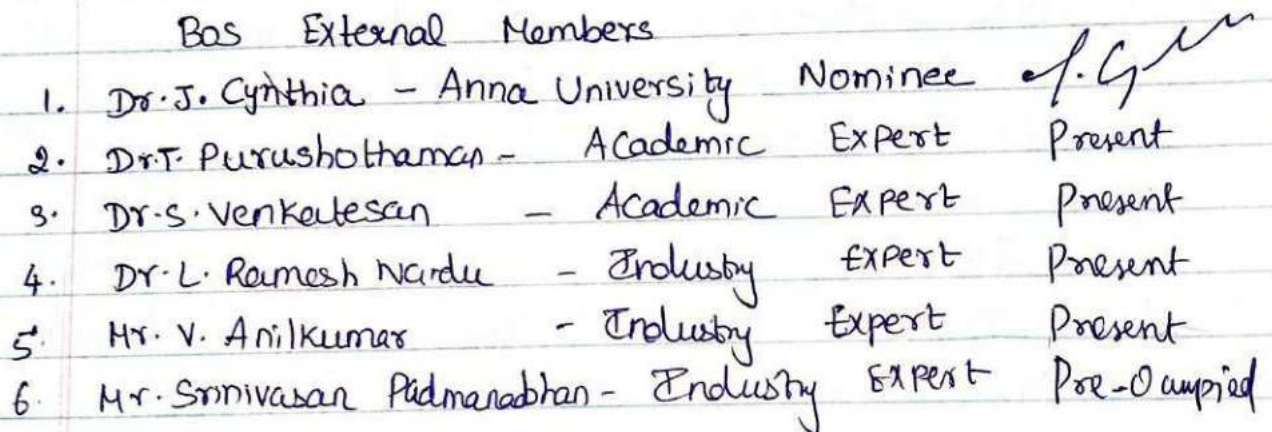 BoS External Members
1. Dr. J. Cynthia - Anna University Nominee J. Cy
2. Dr.T. Purushothaman - Academic Expert Present
3. Dr.S. Venkatesan - Academic Expert Present
4. Dr. L. Ramesh Naidu - Industry Expert Present
5. Mr. V. Anilkumar - Industry Expert Present
6. Mr. Srinivasan Padmanabhan - Industry Expert Pre-Occupied